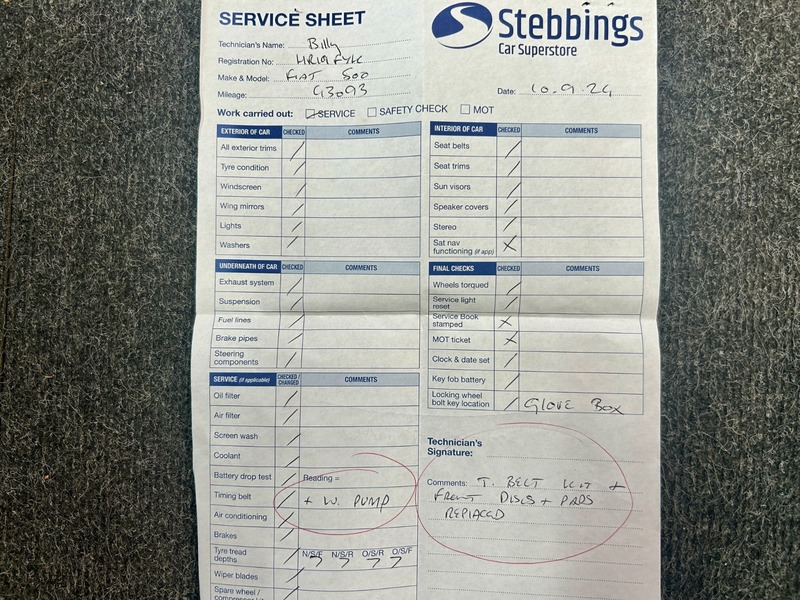 SERVICE SHEET
Stebbings
Car Superstore
Technician's Name: Billy
Registration No: HR19 FYK
Make & Model: FIAT 500
Mileage: 43093
Date: 10.9.24
Work carried out: SERVICE SAFETY CHECK MOT
EXTERIOR OF CAR CHECKED COMMENTS
All exterior trims
Tyre condition
Windscreen
Wing mirrors
Lights
Washers
INTERIOR OF CAR CHECKED COMMENTS
Seat belts
Seat trims
Sun visors
Speaker covers
Stereo
Sat nav
functioning (if app)
UNDERNEATH OF CAR CHECKED COMMENTS
Exhaust system
Suspension
Fuel lines
Brake pipes
Steering
components
FINAL CHECKS CHECKED COMMENTS
Wheels torqued
Service light
reset
Service Book
stamped
MOT ticket
Clock & date set
Key fob battery
Locking wheel
bolt key location GLOVE BOX
SERVICE (if applicable) CHECKED / CHANGED COMMENTS
Oil filter
Air filter
Screen wash
Coolant
Battery drop test Reading =
Timing belt + W. PUMP
Air conditioning
Brakes
Tyre tread
depths N/S/F 7 N/S/R 7 O/S/R 7 O/S/F 7
Wiper blades
Spare wheel /
Technician's
Signature:
Comments: T. BELT KIT +
FRONT DISCS + PADS
REPLACED